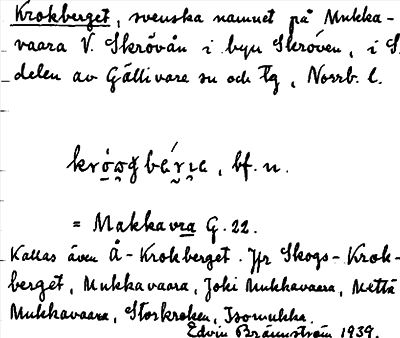 Krokberget, svenska namnet på Mukka-
vaara V. Skröven i byn Skröven, i S.
delen av Gällivare sn och tg, Norrb. l.
bf. n.
= Makkavra G. 22.
Kallas även Å-Krokberget. Jfr Skogs-Krok-
berget, Mukkavaara, Joki Mukkavaara, Mettä
Mukkavaara, Storkroken, Isomukka.
Edvin Brännström 1939.